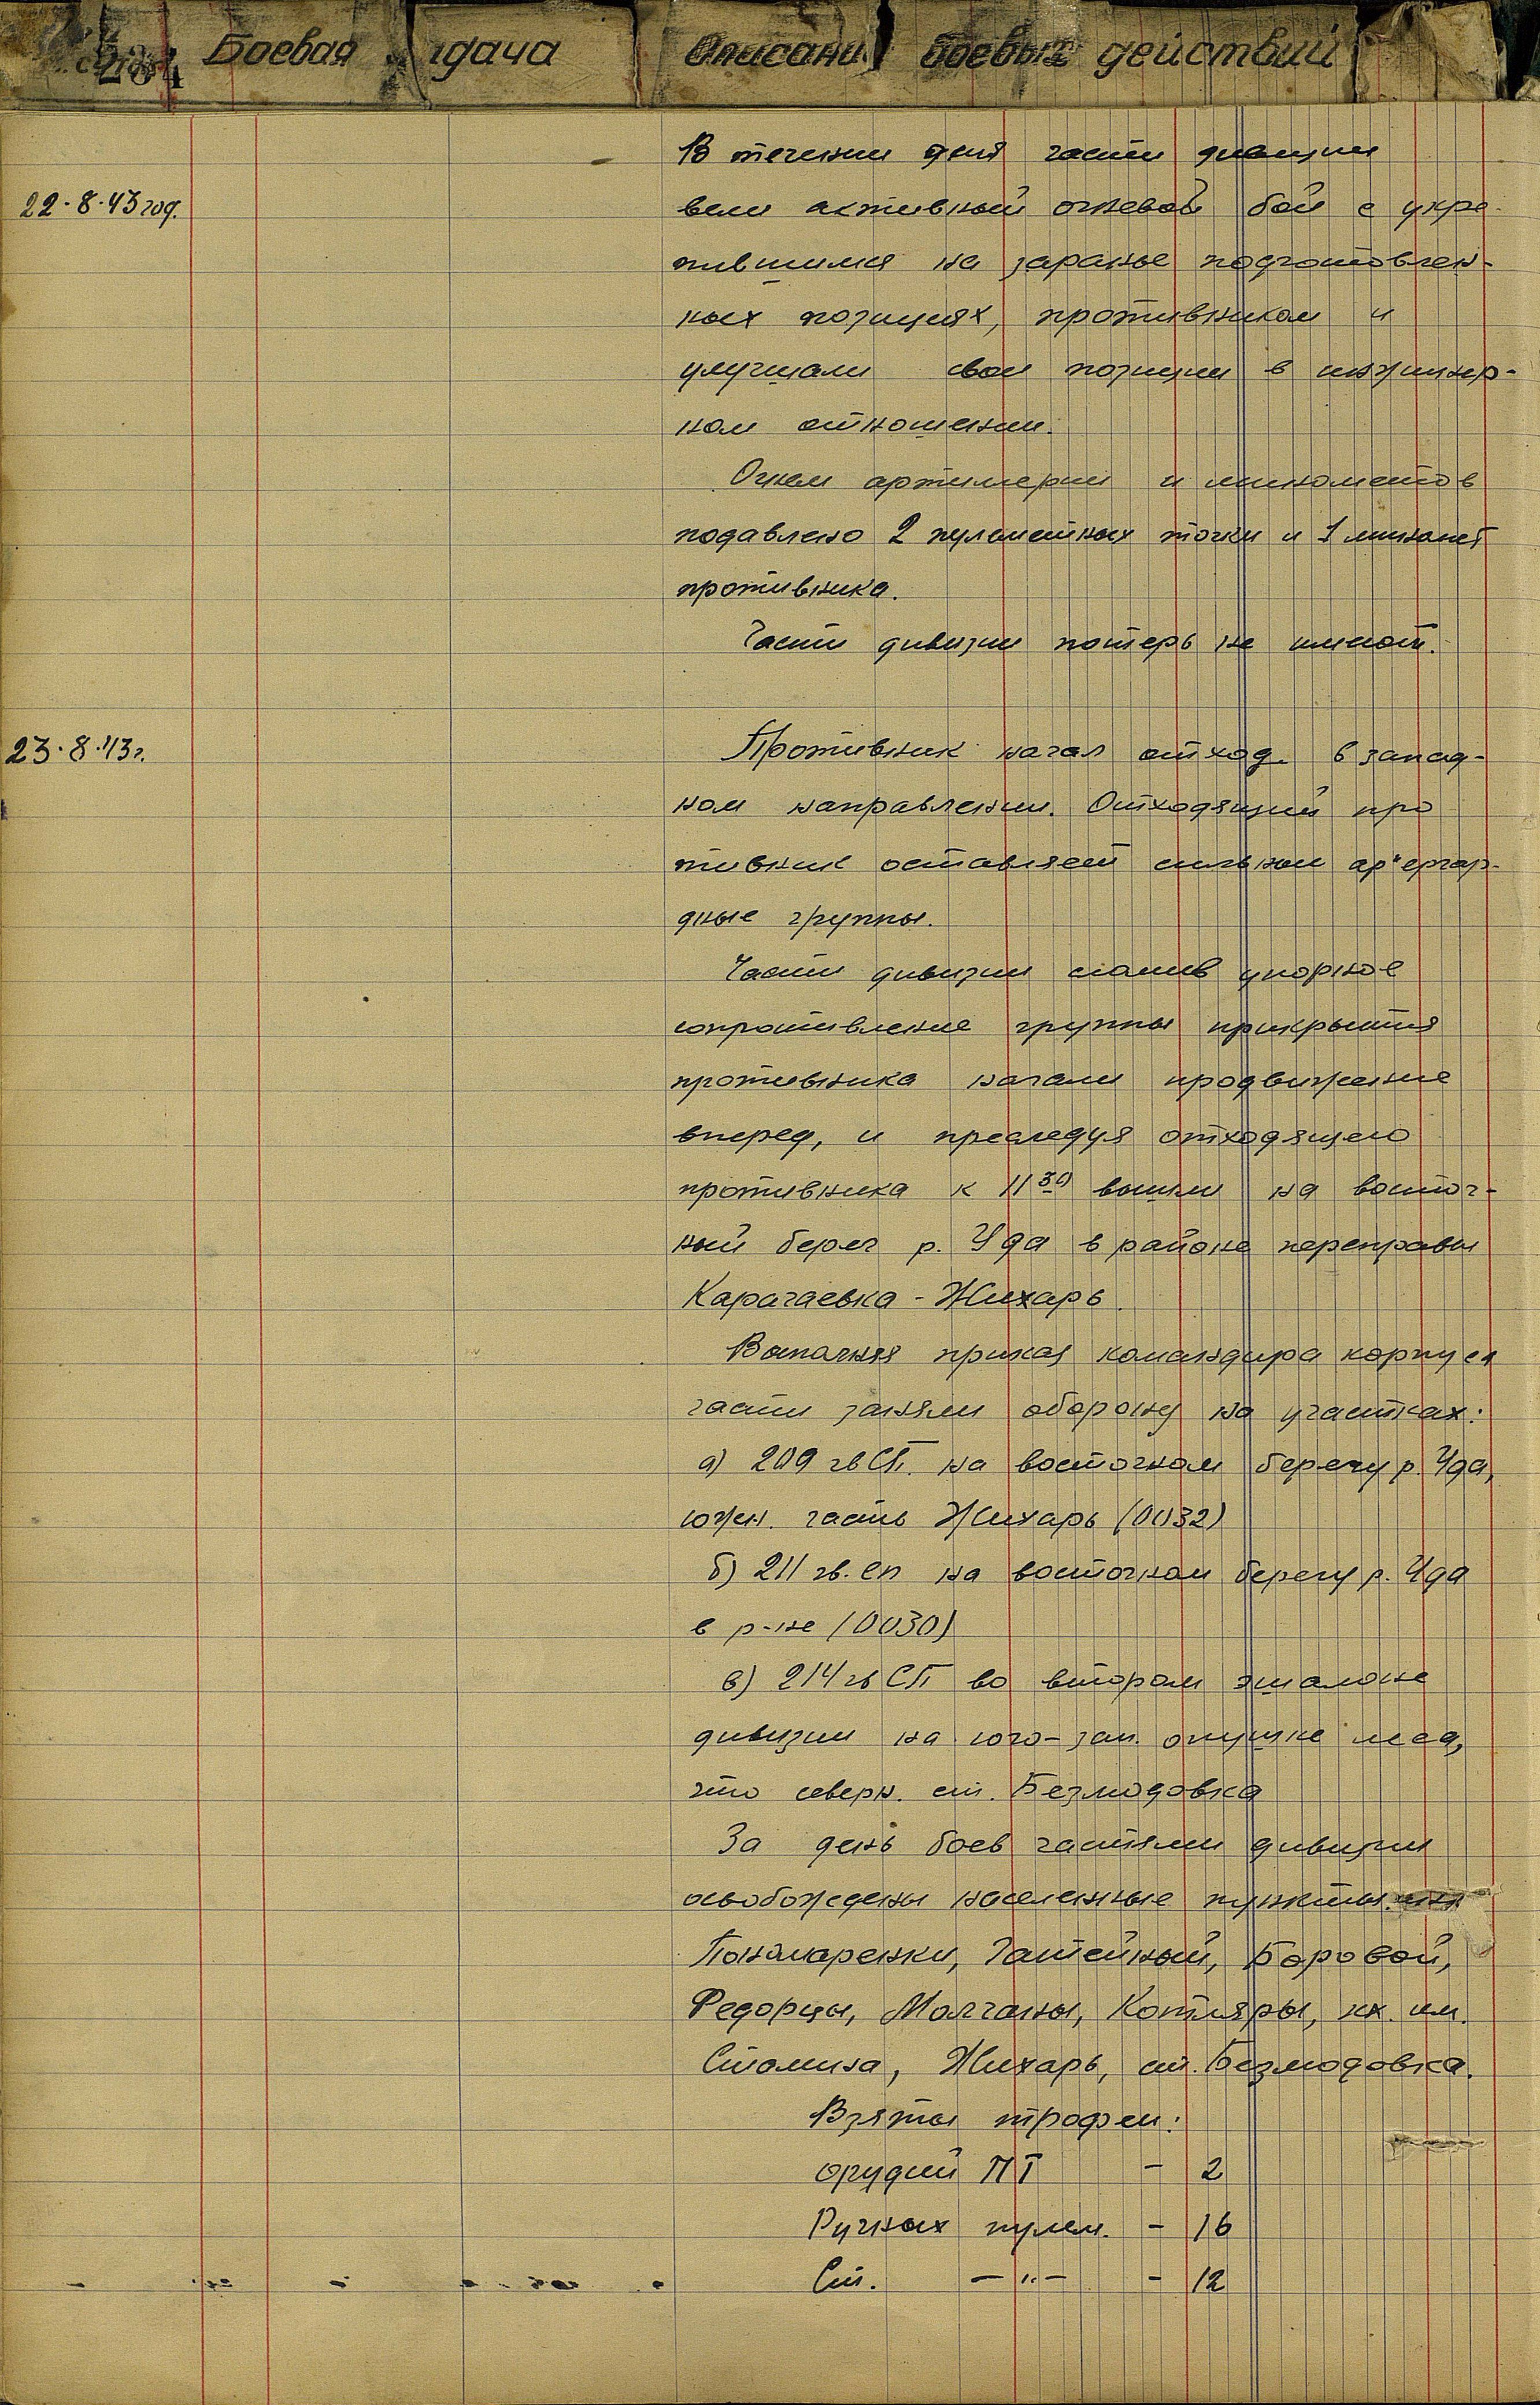 204 Боевая дача Описани боевых действий
В течении дня части дивизии
22·8·43 год.
вели активный огневой бой с укре-
пившимся на заранье подготовлен-
ных позициях, противником и
улучшали свои позиции в инжинер-
ном отношении.
Огнем артиллерии и минометов
подавлено 2 пулеметных точки и 1 миномет
противника.
Части дивизии потерь не имеют.
23·8·43 г.
Противник начал отход в запад-
ном направлении. Отходящий про
тивник оставляет сильные ар"ергар-
дные группы.
Части дивизии сломив упорное
сопротивление группы прикрытия
противника начали продвижение
вперед, и преследуя отходящего
противника к 11 30 вышли на восточ-
ный берег р. Уда в районе переправы
Карачаевка - Жихарь.
Выполняя приказ командира корпуса
части заняли оборону на участках:
а) 209 гв СП. на восточном берегу р. Уда,
южн. часть Жихарь (0032)
б) 211 гв. сп на восточном берегу р. Уда
в р-не (0030)
в) 214 гв СП во втором эшалоне
дивизии на юго-зап. опушке леса,
что северн. ст. Безмодовка
За день боев частями дивизии
освобождены населенные пункты:
Пономаренки, Затейный, Боровой,
Федорцы, Молчаны, Котляры, кх. им.
Сталина, Жихарь, ст. Безмодовка.
Взяты трофеи:
орудий ПТ - 2
Ручных пулем. - 16
Ст. -"- - 12